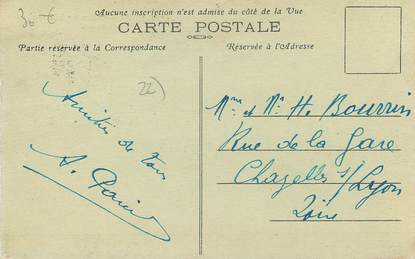 30 €
Aucune inscription n'est admise du côté de la Vue
CARTE POSTALE
Partie réservée à la Correspondance
Réservée à l'Adresse
22)
Amitiés de tous
A.
Mme et Mr H. Bourrin
Rue de la Gare
Chazelles s/Lyon
Loire